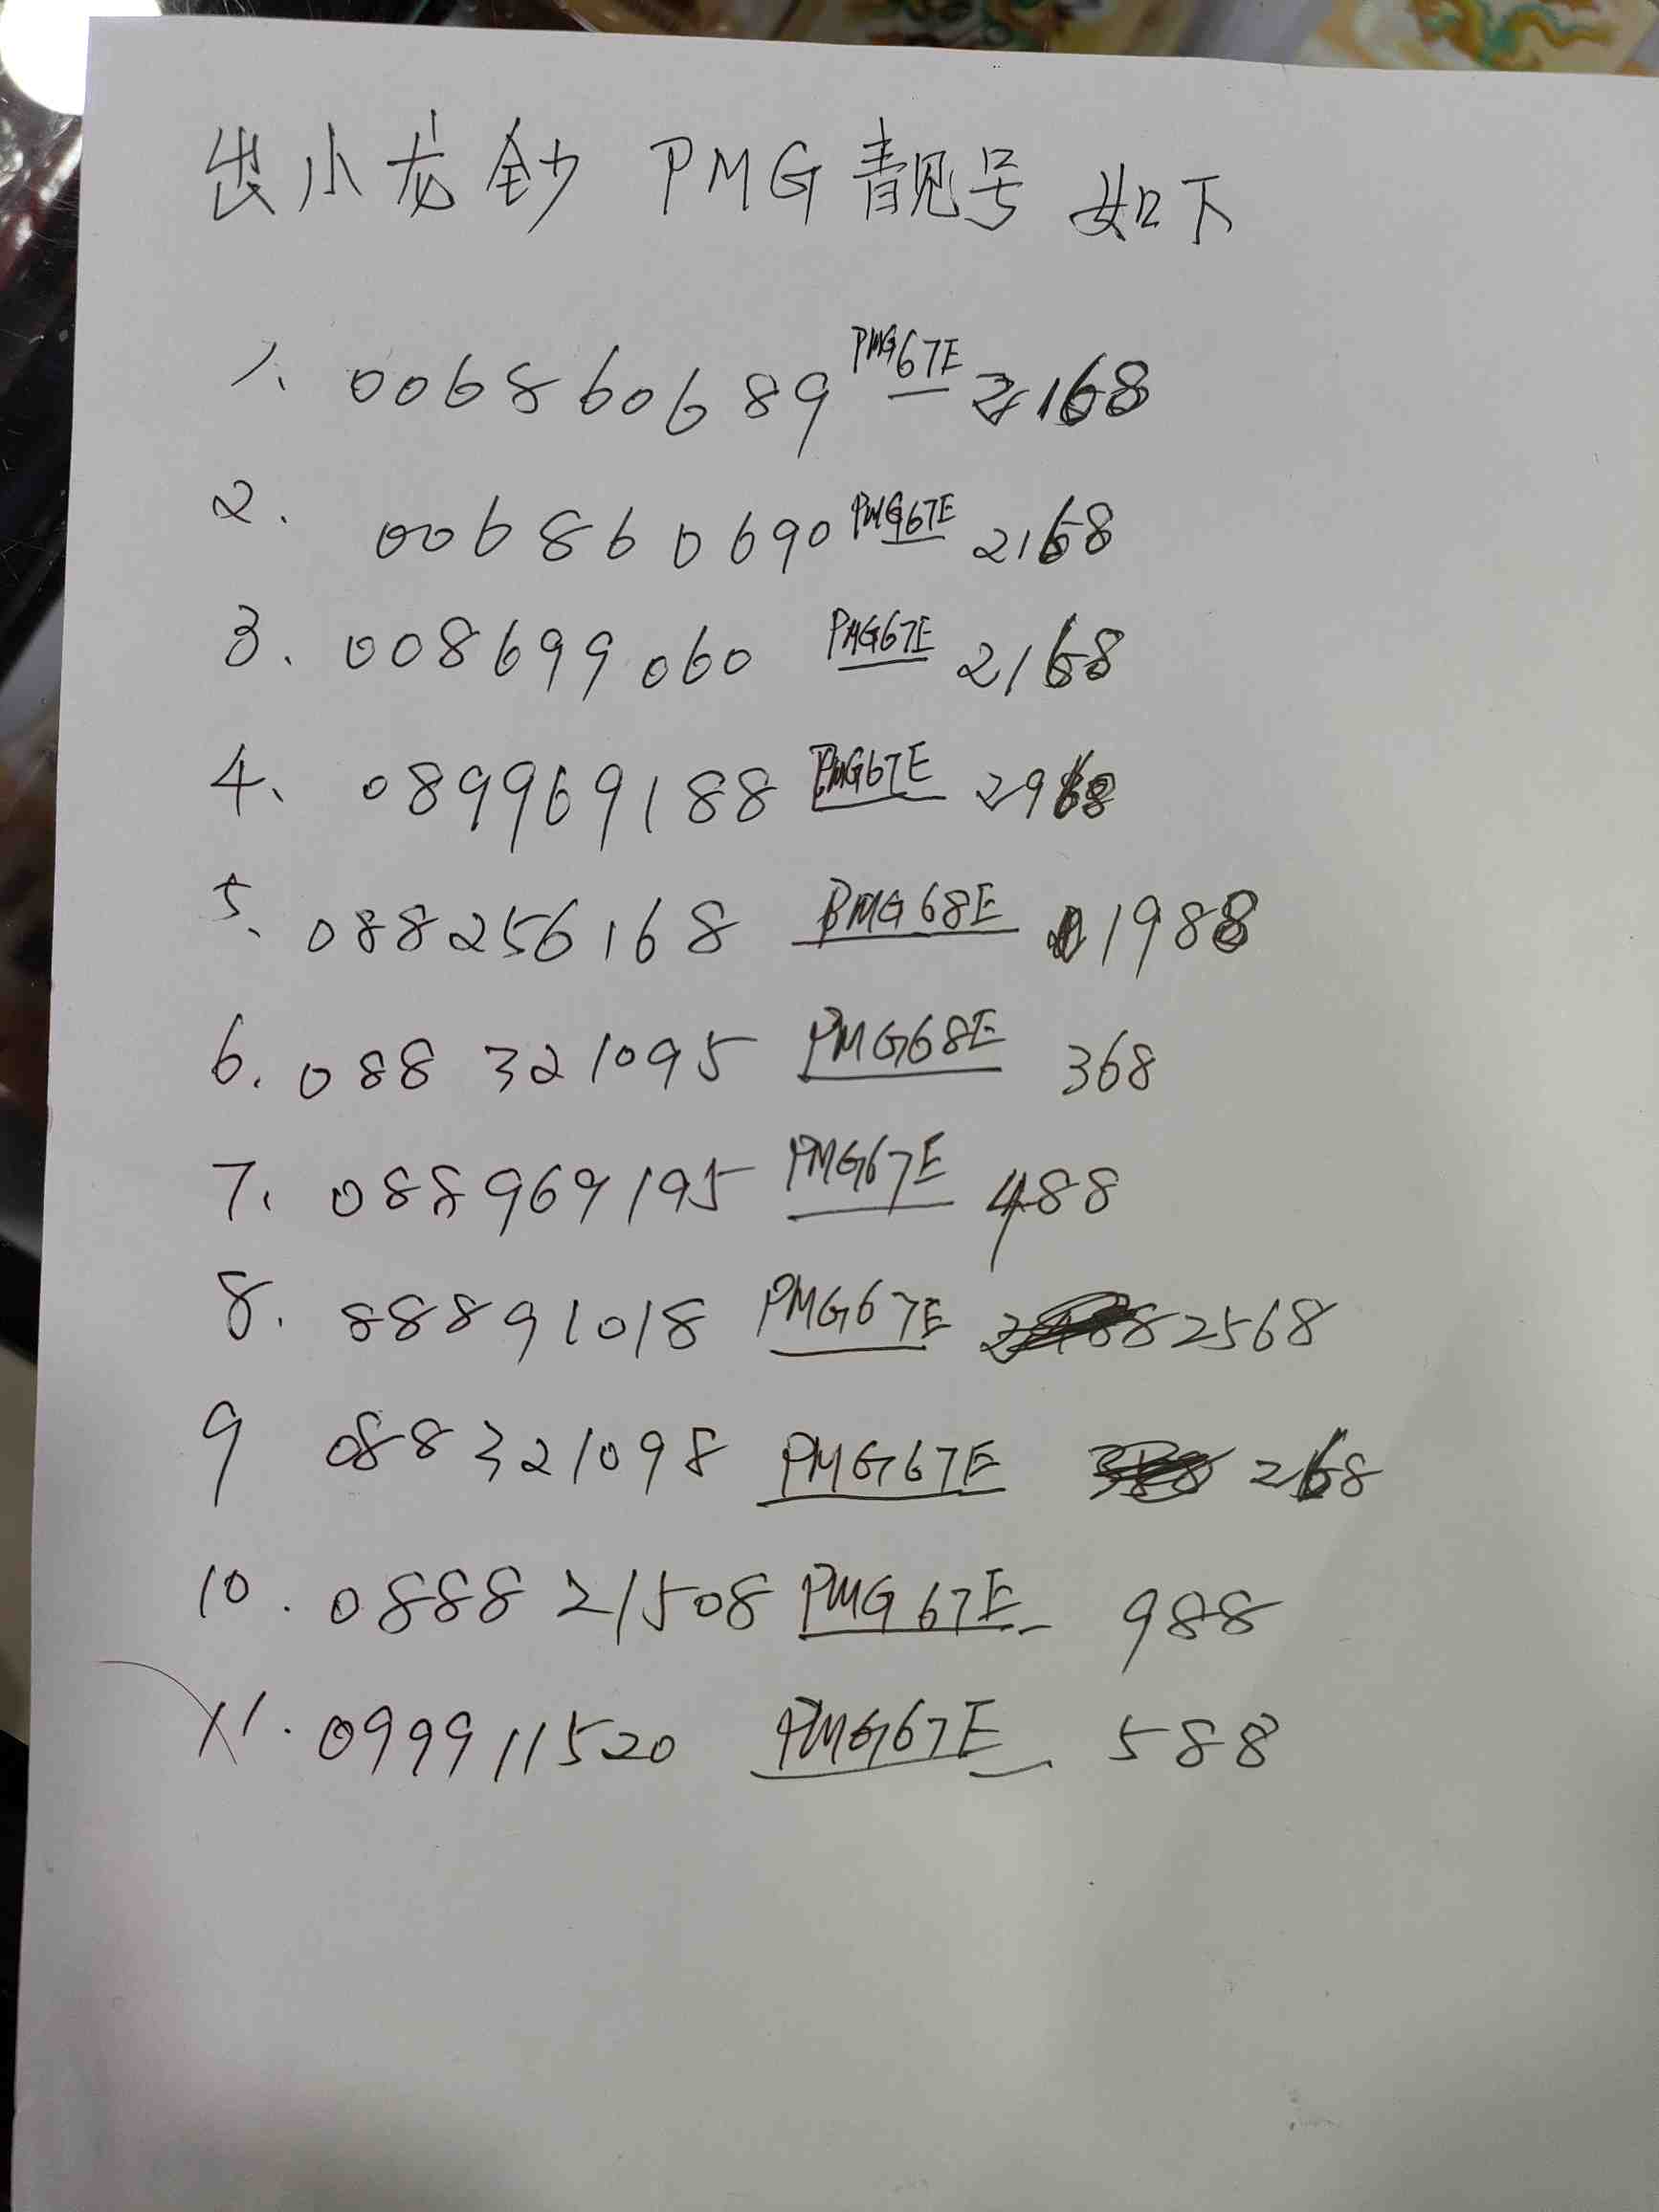 出小龙钞 PMG靓号 如下
1、006860689 PMG67E 2168
2. 006860690 PMG67E 2168
3、008699060 PMG67E 2168
4、089969188 PMG67E 2968
5、088256168 PMG68E 1988
6. 088321095 PMG68E 368
7、088969195 PMG67E 488
8. 88891018 PMG67E 2568
9 088321098 PMG67E 268
10. 088821508 PMG67E 988
11. 099911520 PMG67E 588